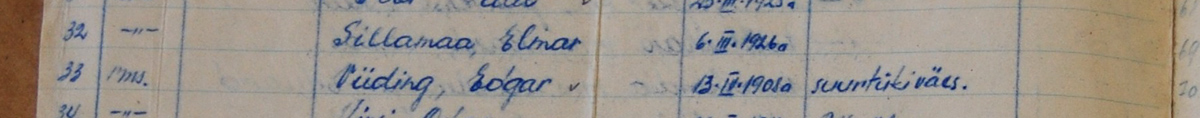 32 —"— Sillamaa, Elmar 6. III. 1926a
33 rms. Viiding, Edgar v 13. IV. 1908a suurtükiväes.
34 —"—